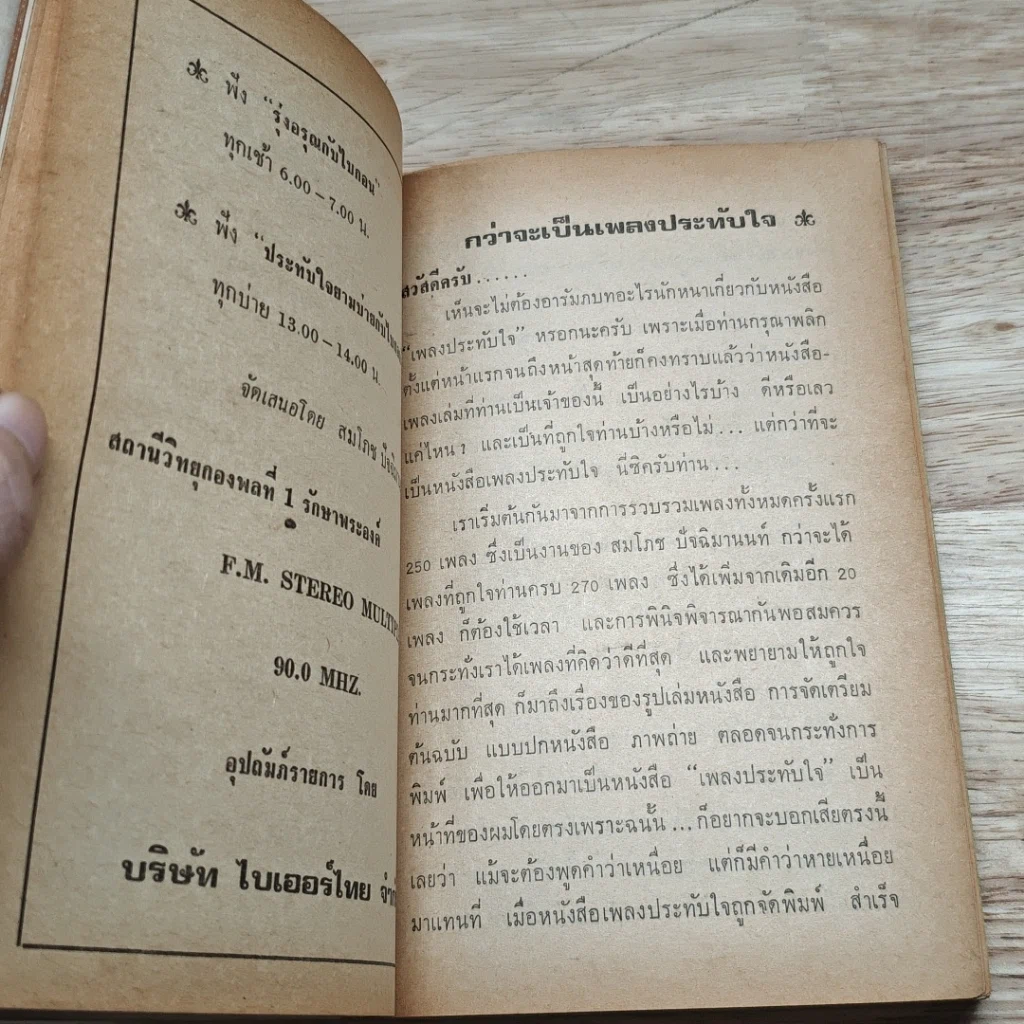 ฟัง "รุ่งอรุณกับไบกอน"
ทุกเช้า 6.00 – 7.00 น.
ฟัง "ประทับใจยามบ่ายกับ
ทุกบ่าย 13.00 – 14.00 น.
จัดเสนอโดย สมโภช
สถานีวิทยุกองพลที่ 1 รักษาพระองค์
F.M. STEREO
90.0 MHZ.
อุปถัมภ์รายการ โดย
บริษัท ไบเออร์ไทย
กว่าจะเป็นเพลงประทับใจ
สวัสดีครับ ......
เห็นจะไม่ต้องอารัมภบทอะไรนักหนาเกี่ยวกับหนังสือ
"เพลงประทับใจ" หรอกนะครับ เพราะเมื่อท่านกรุณาพลิก
ตั้งแต่หน้าแรกจนถึงหน้าสุดท้ายก็คงทราบแล้วว่าหนังสือ-
เพลงเล่มที่ท่านเป็นเจ้าของนี้ เป็นอย่างไรบ้าง ดีหรือเลว
แค่ไหน ? และเป็นที่ถูกใจท่านบ้างหรือไม่ ... แต่กว่าที่จะ
เป็นหนังสือเพลงประทับใจ นี่ซิครับท่าน ...
เราเริ่มต้นกันมาจากการรวบรวมเพลงทั้งหมดครั้งแรก
250 เพลง ซึ่งเป็นงานของ สมโภช ปัจฉิมานนท์ กว่าจะได้
เพลงที่ถูกใจท่านครบ 270 เพลง ซึ่งได้เพิ่มจากเดิมอีก 20
เพลง ก็ต้องใช้เวลา และการพินิจพิจารณากันพอสมควร
จนกระทั่งเราได้เพลงที่คิดว่าดีที่สุด และพยายามให้ถูกใจ
ท่านมากที่สุด ก็มาถึงเรื่องของรูปเล่มหนังสือ การจัดเตรียม
ต้นฉบับ แบบปกหนังสือ ภาพถ่าย ตลอดจนกระทั่งการ
พิมพ์ เพื่อให้ออกมาเป็นหนังสือ "เพลงประทับใจ" เป็น
หน้าที่ของผมโดยตรงเพราะฉนั้น ... ก็อยากจะบอกเสียตรงนี้
เลยว่า แม้จะต้องพูดคำว่าเหนื่อย แต่ก็มีคำว่าหายเหนื่อย
มาแทนที่ เมื่อหนังสือเพลงประทับใจถูกจัดพิมพ์ สำเร็จ